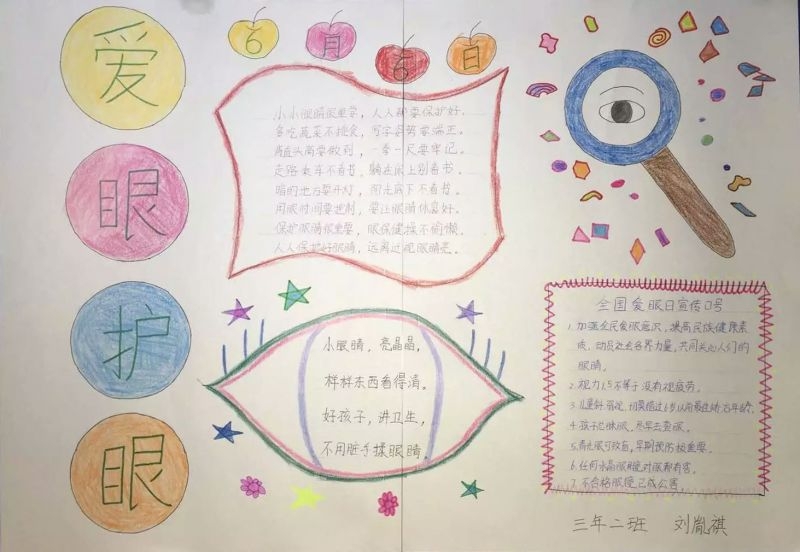 爱
眼
护
眼
6
月
6
日
小小眼睛很重要，人人都要保护好。
多吃蔬菜不挑食，写字姿势要端正。
肩直头高要做到，一拳一尺要牢记。
走路乘车不看书，躺在床上别看书。
暗的地方要开灯，阳光底下不看书。
用眼时间要控制，要让眼睛休息好。
保护眼睛很重要，眼保健操不偷懒。
人人保护好眼睛，远离近视眼睛亮。
小眼睛，亮晶晶，
样样东西看得清。
好孩子，讲卫生，
不用脏手揉眼睛。
全国爱眼日宣传口号
1. 加强全民爱眼意识，提高民族健康素
质，动员社会各界力量，共同关心人们的
眼睛。
2. 视力1.5不等于没有视疲劳。
3. 儿童斜弱视，切莫错过6岁以前最佳治疗年龄。
4. 孩子总眯眼，尽早去查眼。
5. 青光眼可致盲，早期预防极重要。
6. 任何水晶眼镜对眼都有害。
7. 不合格眼镜已成公害
三年二班 刘胤祺